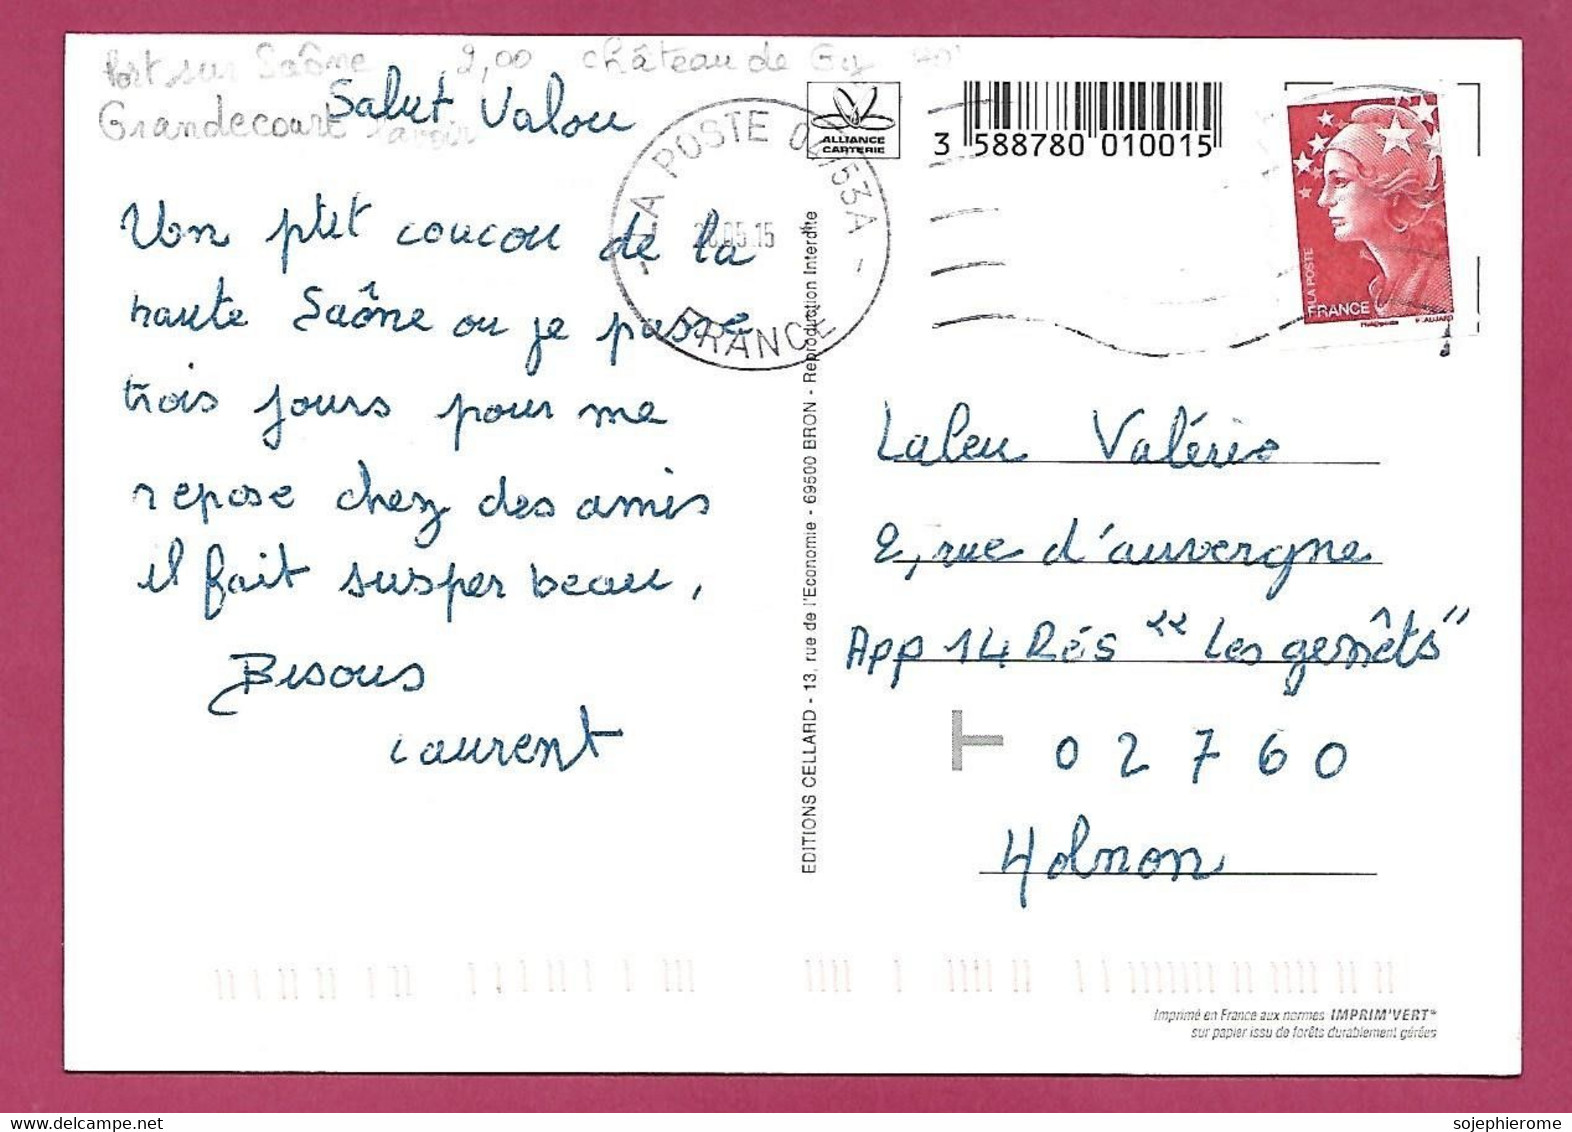 Port sur Saône 2,00 château de Gy
Grandecourt
Salut Valou
Un p'tit coucou de la
haute Saône ou je passe
trois jours pour me
repose chez des amis
il fait susper beau,
Bisous
Laurent
LA POSTE 04153A
05.15
FRANCE
ALLIANCE
CARTERIE
3 588780 010015
LA POSTE
FRANCE
EDITIONS CELLARD - 13, rue de l'Economie - 69500 BRON - Reproduction Interdite
Laleu Valérie
2, rue d'auvergne
App 14 Rés "Les genêts"
T 02760
Holnon
Imprimé en France aux normes IMPRIM'VERT®
sur papier issu de forêts durablement gérées
sojephierome